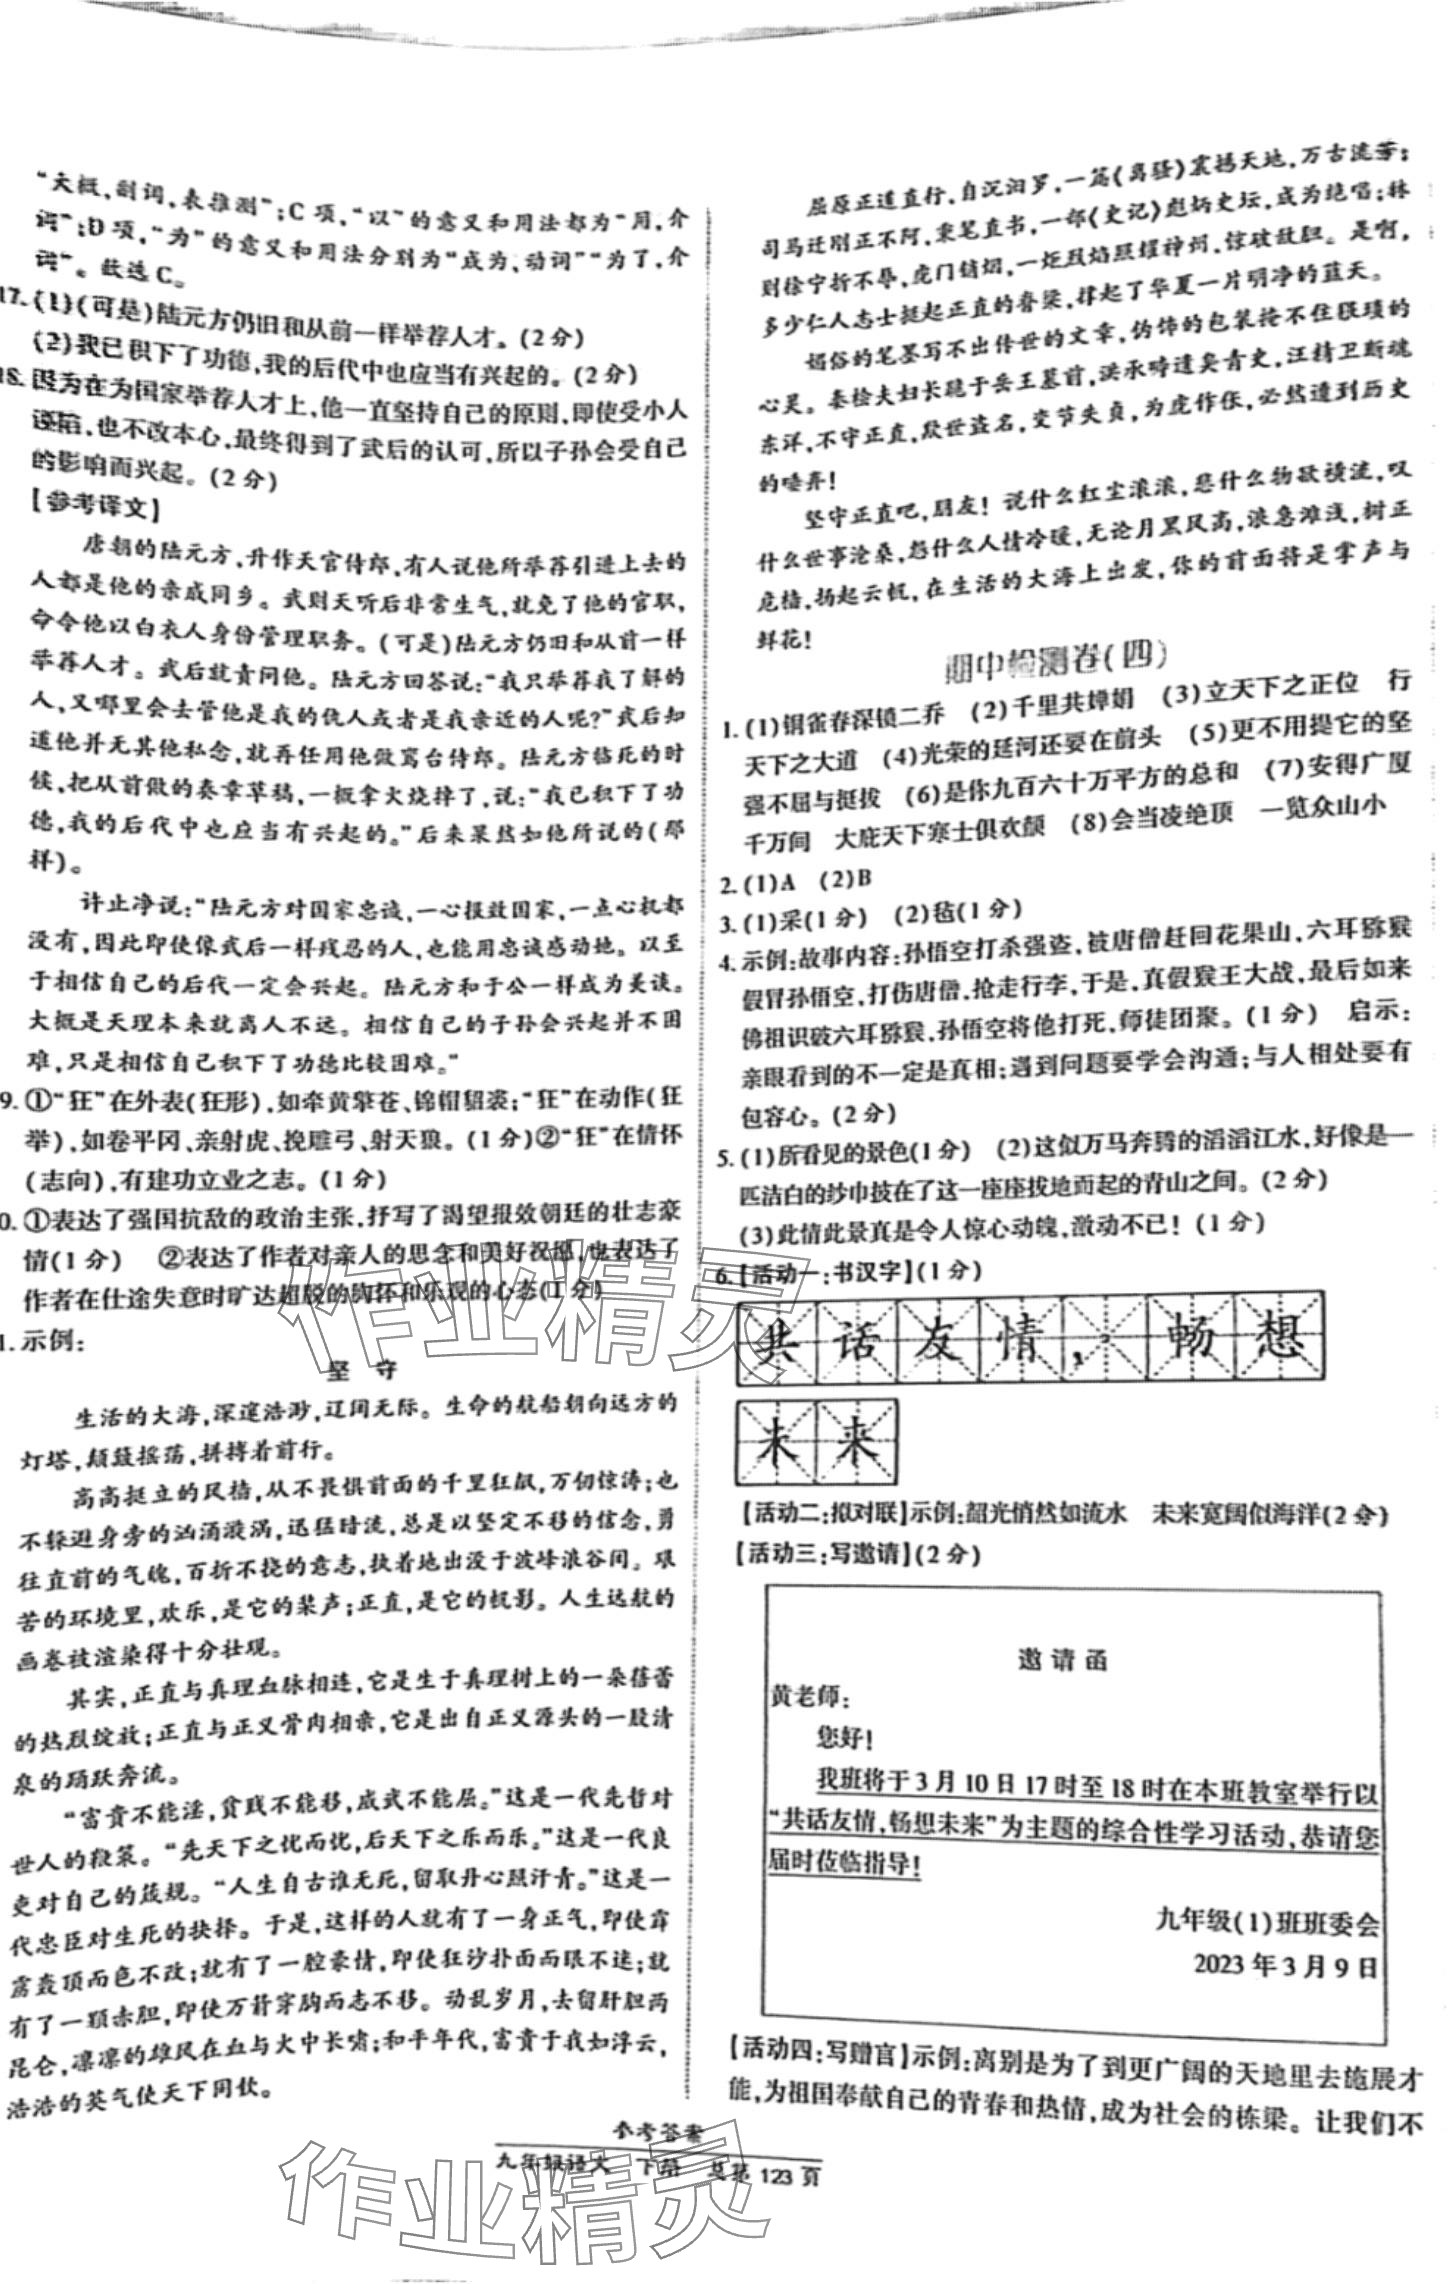 “大概,副词,表推测”;C项,“以”的意义和用法都为“用,介
词”;D项,“为”的意义和用法分别为“成为,动词”“为了,介
词”。故选C。
17.(1)(可是)陆元方仍旧和从前一样举荐人才。(2分)
(2)我已积下了功德,我的后代中也应当有兴起的。(2分)
18.因为在为国家举荐人才上,他一直坚持自己的原则,即使受小人
诬陷,也不改本心,最终得到了武后的认可,所以子孙会受自己
的影响而兴起。(2分)
【参考译文】
唐朝的陆元方,升作天官侍郎,有人说他所举荐引进上去的
人都是他的亲戚同乡。武则天听后非常生气,就免了他的官职,
命令他以白衣人身份管理职务。(可是)陆元方仍旧和从前一样
举荐人才。武后就责问他。陆元方回答说:“我只举荐我了解的
人,又哪里会去管他是我的仇人或者是我亲近的人呢?”武后知
道他并无其他私念,就再任用他做鸾台侍郎。陆元方临死的时
候,把从前做的奏章草稿,一概拿火烧掉了,说:“我已积下了功
德,我的后代中也应当有兴起的。”后来果然如他所说的(那
样)。
许止净说:“陆元方对国家忠诚,一心报效国家,一点心机都
没有,因此即使像武后一样残忍的人,也能用忠诚感动她。以至
于相信自己的后代一定会兴起。陆元方和于公一样成为美谈。
大概是天理本来就离人不远。相信自己的子孙会兴起并不困
难,只是相信自己积下了功德比较困难。”
9.①“狂”在外表(狂形),如牵黄擎苍、锦帽貂裘;“狂”在动作(狂
举),如卷平冈、亲射虎、挽雕弓、射天狼。(1分)②“狂”在情怀
(志向),有建功立业之志。(1分)
0.①表达了强国抗敌的政治主张,抒写了渴望报效朝廷的壮志豪
情(1分) ②表达了作者对亲人的思念和美好祝愿,也表达了
作者在仕途失意时旷达超脱的胸怀和乐观的心态(1分)
1.示例:
坚 守
生活的大海,深邃浩渺,辽阔无际。生命的航船朝向远方的
灯塔,颠簸摇荡,拼搏着前行。
高高挺立的风樯,从不畏惧前面的千里狂飙,万仞惊涛;也
不躲避身旁的汹涌漩涡,迅猛暗流,总是以坚定不移的信念,勇
往直前的气魄,百折不挠的意志,执着地出没于波峰浪谷间。艰
苦的环境里,欢乐,是它的桨声;正直,是它的帆影。人生远航的
画卷被渲染得十分壮观。
其实,正直与真理血脉相连,它是生于真理树上的一朵蓓蕾
的热烈绽放;正直与正义骨肉相亲,它是出自正义源头的一股清
泉的踊跃奔流。
“富贵不能淫,贫贱不能移,威武不能屈。”这是一代先哲对
世人的鞭策。“先天下之忧而忧,后天下之乐而乐。”这是一代良
吏对自己的箴规。“人生自古谁无死,留取丹心照汗青。”这是一
代忠臣对生死的抉择。于是,这样的人就有了一身正气,即使霹
雳轰顶而色不改;就有了一腔豪情,即使狂沙扑面而眼不迷;就
有了一颗赤胆,即使万箭穿胸而志不移。动乱岁月,去留肝胆两
昆仑,凛凛的雄风在血与火中长啸;和平年代,富贵于我如浮云,
浩浩的英气使天下同钦。
屈原正道直行,自沉汨罗,一篇《离骚》震撼天地,万古流芳;
司马迁刚正不阿,秉笔直书,一部《史记》彪炳史坛,成为绝唱;林
则徐宁折不辱,虎门销烟,一炬烈焰照耀神州,惊破敌胆。是啊,
多少仁人志士挺起正直的脊梁,撑起了华夏一片明净的蓝天。
媚俗的笔墨写不出传世的文章,伪饰的包装掩不住猥琐的
心灵。秦桧夫妇长跪于岳王墓前,洪承畴遗臭青史,汪精卫断魂
东洋,不守正直,欺世盗名,变节失贞,为虎作伥,必然遭到历史
的唾弃!
坚守正直吧,朋友!说什么红尘滚滚,悲什么物欲横流,叹
什么世事沧桑,怨什么人情冷暖,无论月黑风高,浪急滩浅,树正
危樯,扬起云帆,在生活的大海上出发,你的前面将是掌声与
鲜花!
期中检测卷(四)
1.(1)铜雀春深锁二乔 (2)千里共婵娟 (3)立天下之正位 行
天下之大道 (4)光荣的延河还要在前头 (5)更不用提它的坚
强不屈与挺拔 (6)是你九百六十万平方的总和 (7)安得广厦
千万间 大庇天下寒士俱欢颜 (8)会当凌绝顶 一览众山小
2.(1)A (2)B
3.(1)采(1分) (2)毡(1分)
4.示例:故事内容:孙悟空打杀强盗,被唐僧赶回花果山,六耳猕猴
假冒孙悟空,打伤唐僧,抢走行李,于是,真假猴王大战,最后如来
佛祖识破六耳猕猴,孙悟空将他打死,师徒团聚。(1分) 启示:
亲眼看到的不一定是真相;遇到问题要学会沟通;与人相处要有
包容心。(2分)
5.(1)所看见的景色(1分) (2)这似万马奔腾的滔滔江水,好像是一
匹洁白的纱巾披在了这一座座拔地而起的青山之间。(2分)
(3)此情此景真是令人惊心动魄,激动不已!(1分)
6.【活动一:书汉字】(1分)
共话友情,畅想
未来
【活动二:拟对联】示例:韶光悄然如流水 未来宽阔似海洋(2分)
【活动三:写邀请】(2分)
邀请函
黄老师:
您好!
我班将于3月10日17时至18时在本班教室举行以
“共话友情,畅想未来”为主题的综合性学习活动,恭请您
届时莅临指导!
九年级(1)班班委会
2023年3月9日
【活动四:写赠言】示例:离别是为了到更广阔的天地里去施展才
能,为祖国奉献自己的青春和热情,成为社会的栋梁。让我们不
参考答案
九年级语文 下册 共第123页
作业精灵
作业精灵